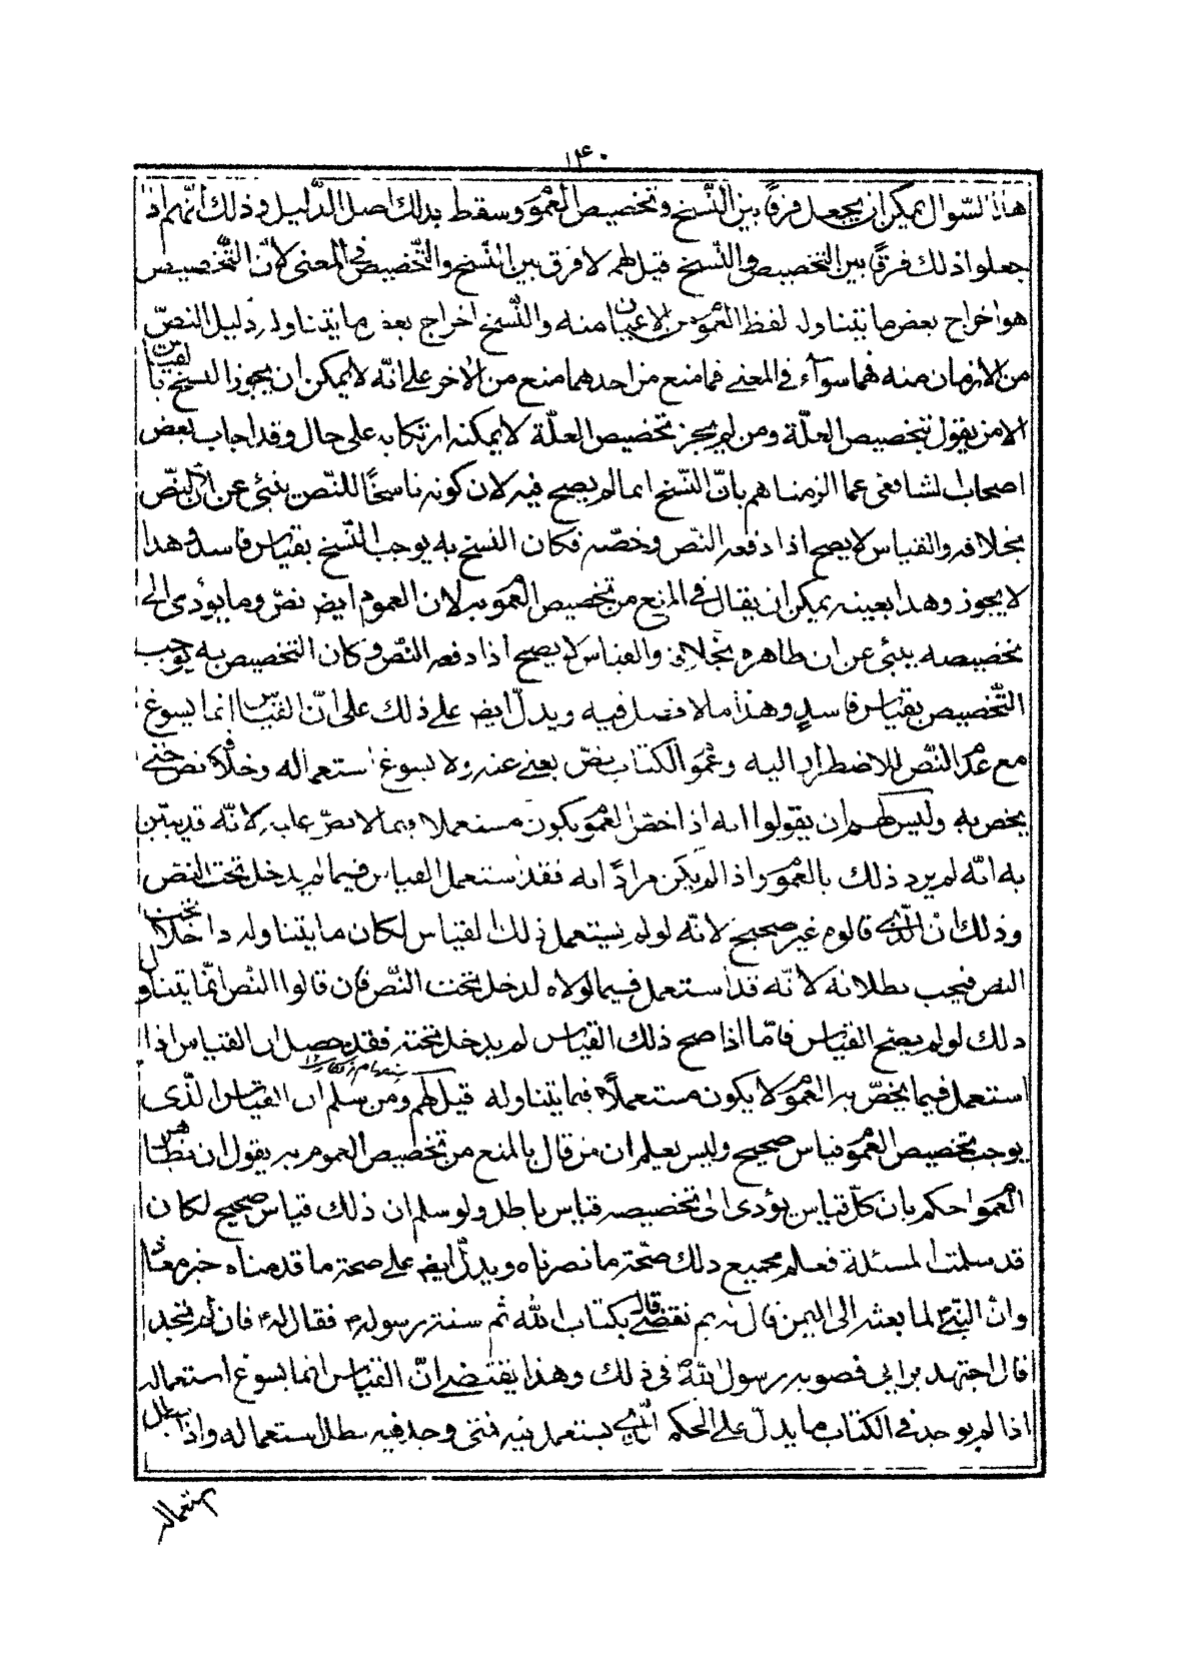 ١٤٠
هذا السّؤال يمكن ان يجعل فرقًا بين النّسخ وتخصيص العموم وسقط بذلك اصل الدّليل وذلك انّهم اذا
جعلوا ذلك فرقًا بين التخصيص والنّسخ قيل لهم لا فرق بين النّسخ والتّخصيص في المعنى لانّ التّخصيص
هو اخراج بعض ما يتناوله لفظ العموم من الاعيان منه والنّسخ اخراج بعض ما يتناوله دليل النصّ
من الازمان منه فهما سوآء في المعنى فما منع من احدهما منع من الاخر على انّه لا يمكن ان يجوز النسخ بالقياس
الا من يقول بتخصيص العلّة ومن لم يجز تخصيص العلّة لا يمكنه ارتكابه على حال وقد اجاب بعض
اصحاب الشافعى عما الزمناهم بانّ النّسخ انما لم يصح فيه لان كونه ناسخًا للنّص ينبئ عن انّ النصّ
بخلافه والقياس لا يصح اذا دفعه النصّ وخصّه فكان النسخ به يوجب النّسخ بقياس فاسد وهذا
لا يجوز وهذا بعينه يمكن ان يقال في المنع من تخصيص العموم به لان العموم ايض نصّ وما يؤدى الى
تخصيصه ينبئ عن ان ظاهره بخلافه والقياس لا يصح اذا دفعه النصّ وكان التخصيص به يوجب
التّخصيص بقياس فاسدٍ وهذا ما لا فضل فيه ويدلّ ايض على ذلك على انّ القياس انما يسوغ
مع عدم النّص للاضطرار اليه وعموم الكتاب نصّ يغنى عنه ولا يسوغ استعماله وخلافه نص حتى
يخص به وليس لهم ان يقولوا انه اذا اختصّ العموم يكون مستعملا فيما لا نصّ عليه لانّه قد يبيّن
به انّه لم يرد ذلك بالعموم واذا لم يكن مرادًا به فقد استعمل القياس فيما لم يدخل تحت النصّ
وذلك انّ الّذى قالوه غير صحيح لانّه لو لم يستعمل ذلك القياس لكان ما يتناوله داخلا تحت
النص فيجب بطلانه لانّه قد استعمل فيما لولاه لدخل تحت النّص فان قالوا النّص انّما يتناول
ذلك لو لم يصح القياس فامّا اذا صح ذلك القياس لم يدخل تحته فقد حصل ان القياس اذا
استعمل فيما يخصّ به العموم لا يكون مستعملًا فيما يتناوله قيل لهم ومن سلم ان القياس الّذى
يوجب تخصيص العموم قياس صحيح وليس يعلم ان من قال بالمنع من تخصيص العموم به يقول ان نصّ
العموم احكم بان كلّ قياس يؤدى الى تخصيصه قياس باطل ولو سلم ان ذلك قياس صحيح لكان
قد سلمت المسئلة فعلم بجميع ذلك صحّة ما نصرناه ويدلّ ايض على صحة ما قدمناه خبر معاذ
وان النّبيّ ص لما بعثه الى اليمن قال له بم تقضى قال بكتاب الله ثم سنة رسوله ص فقال له ص فان لم تجد
قال اجتهد برايى فصوبه رسول الله ص في ذلك وهذا يقتضى انّ القياس انما يسوغ استعماله
اذا لم يوجد في الكتاب ما يدلّ على الحكم الّذى يستعمل فيه فمتى وجد فيه بطل استعماله واذا بطل
استعماله